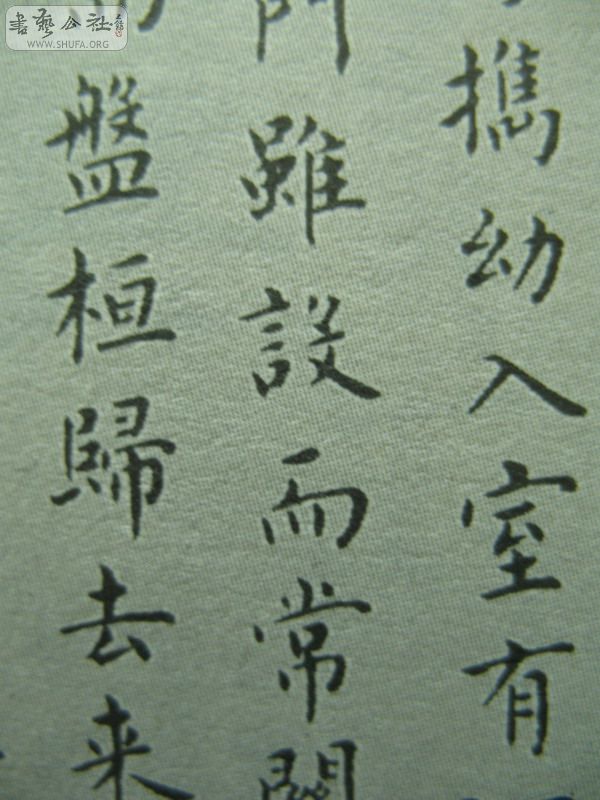 攜幼入室有
門雖設而常關
盤桓歸去来
書藝公社
WWW.SHUFA.ORG